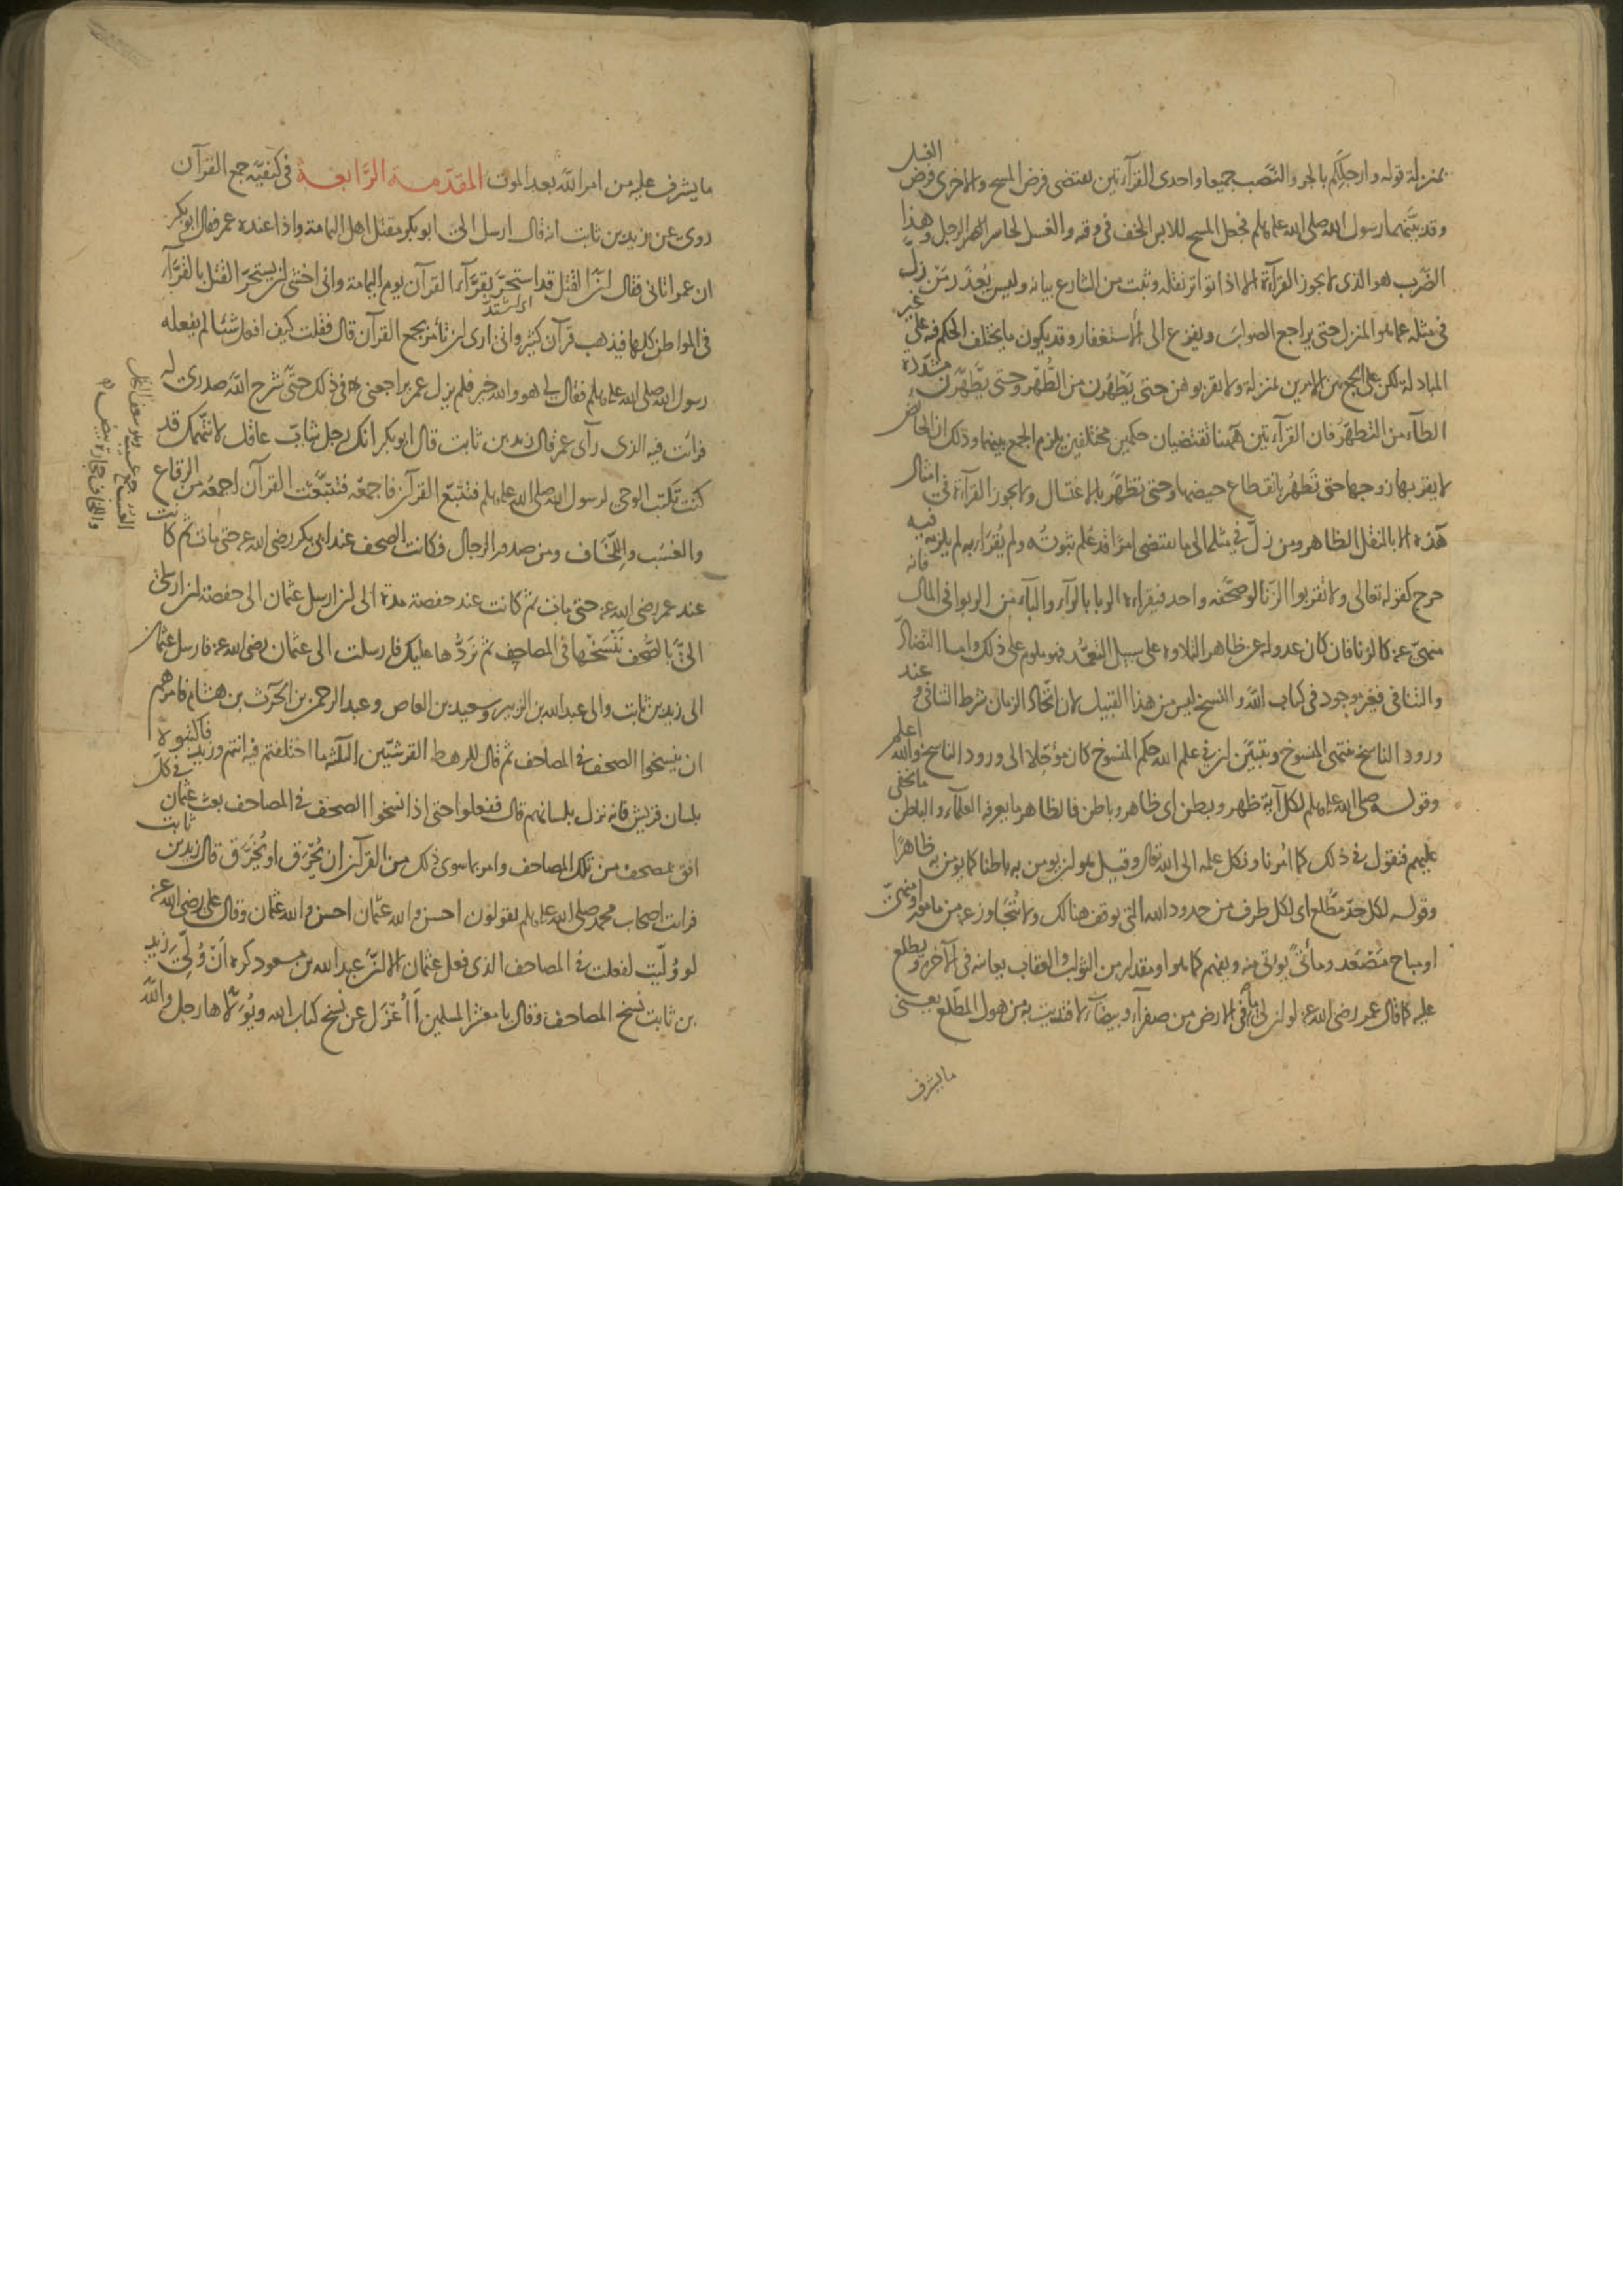 بمنزلة قوله وارجلكم بالجر والنصب جميعا واحدى القرآءتين يقتضى فرض المسح والاخرى فرض الغسل
وقد بينهما رسول الله صلى الله عليه وسلم فجعل المسح للابس الخف فى وقته والغسل لحاسر الرجل وهذا
الضرب هو الذى لا يجوز القرآءة الا اذا تواتر نقله وثبت من الشارع بيانه وليس يعذر من زلّ
فى مثله عما هو المنزل حتى يراجع الصواب ويفزع الى الاستغفار وقد يكون ما يختلف الحكم فيه على غير
المبادلة لكن على الجمع بين الامرين بمنزلة ولا تقربوهن حتى يَطْهُرن من الطُهر وحتى يَطَّهَّرن مشدّدة
الطآء من التطهّر فان القرآءتين ههنا تقتضيان حكمين مختلفين يلزم الجمع بينهما وذلك ان الحائض
لا يقربها زوجها حتى تَطهُر بانقطاع حيضها وحتى تطهّر بالاغتسال ولا يجوز القرآءة فى امثال
هذه الا بالنقل الظاهر ومن زلّ فى مثلها الى ما يقتضى امرًا قد عُلم ثبوتُه ولم يُقرَا به لم يلزمه فيه
حرج كقوله تعالى ولا تقربوا الزنا لو صحّفه واحد فيقرأه الربا بالرآء والبآء فان الربوا فى المال
منهىّ عنه كالزنا فان كان عدوله عن ظاهر التلاوة على سبيل التعمّد فهو ملوم على ذلك واما التضادّ
والتنافى فغير موجود فى كتاب الله والنسخ ليس من هذا القبيل لان اتّحاد الزمان شرط التنافى و عند
ورود الناسخ ينتهى المنسوخ ويتبيّن ان فى علم الله حكم المنسوخ كان مؤجّلا الى ورود الناسخ والله اعلم
وقوله صلى الله عليه وسلم لكل آية ظهر وبطن اى ظاهر وباطن فالظاهر ما يعرفه العلمآء والباطن ما يخفى
عليهم فنقول فى ذلك كما امرنا ونكل علمه الى الله تعالى وقيل هو ان يومن به باطنا كما يومن به ظاهرًا
وقوله لكل حدّ مطّلع اى لكل طرف من حدود الله التى يوقف هنالك ولا تُتجاوز عنه من مامور او منهىّ
او مباح مُتصعّد ومأتًى يوتى منه ويفهم كما هو او مقدار من الثواب والعقاب يعاينه فى الآخرة ويطلع
عليه كما قال عمر رضى الله عنه لو ان لى ما فى الارض من صفرآء وبيضآء لافتديت به من هول المطّلع يعنى
ما يشرف
ما يشرف عليه من امر الله بعد الموت المقدّمة الرّابعة فى كيفيّة جمع القرآن
روى عن زيد بن ثابت انه قال ارسل الىّ ابو بكر مقتل اهل اليمامة واذا عنده عمر فقال ابو بكر
ان عمر اتانى فقال انّ القتل قد استحرّ بقرّآء القرآن يوم اليمامة وانى اخشى ان يستحرّ القتل بالقرّآء
اى اشتدّ
فى المواطن كلها فيذهب قرآن كثير وانى ارى ان تأمر بجمع القرآن قال فقلت كيف افعل شئا لم يفعله
رسول الله صلى الله عليه وسلم فقال لى هو والله خير فلم يزل عمر يراجعنى فى ذلك حتّى شرح الله صدرى له
فرأيت فيه الذى رآى عمر قال زيد بن ثابت قال ابو بكر انك رجل شابّ عاقل لا نتّهمك قد
كنت تكتب الوحى لرسول الله صلى الله عليه وسلم فتتبّع القرآن فاجمعه فتتبّعت القرآن اجمعه من الرقاع
والعُسُب واللِّخَاف ومن صدور الرجال فكانت الصحف عند ابى بكر رضى الله عنه حتى مات ثم كانت
عند عمر رضى الله عنه حتى مات ثم كانت عند حفصة مدة الى ان ارسل عثمان الى حفصة ان ارسلى
الىّ بالصُّحف نَنْسَخْها فى المصاحف ثم نَرُدُّها عليك فارسلت الى عثمان رضى الله عنه فارسل عثمان
الى زيد بن ثابت والى عبد الله بن الزبير وسعيد بن العاص وعبد الرحمن بن الحرث بن هشام فامرهم
ان ينسخوا الصحف فى المصاحف ثم قال للرهط القرشيّين الثلثة ما اختلفتم فيه انتم وزيد فاكتبوه
بلسان قريش فانه نزل بلسانهم قال ففعلوا حتى اذا نسخوا الصحف فى المصاحف بعث عثمان فى كلّ
افق بمصحف من تلك المصاحف وامر بما سوى ذلك من القرآن ان يُحرق او يُخرق قال زيد بن ثابت
فرايت اصحاب محمد صلى الله عليه وسلم يقولون احسن والله عثمان احسن والله عثمان وقال على رضى الله عنه
لو وُلّيت لفعلت فى المصاحف الذى فعل عثمان الا انّ عبد الله بن مسعود كره اَنْ وُلّى زيد
بن ثابت نسخ المصاحف وقال يا معشر المسلمين أَأُعْزَل عن نسخ كتاب الله ويُوَلّاها رجل والله
العُسُب جمع عسيب وهو سعف النخل
واللخاف حجارة بيض